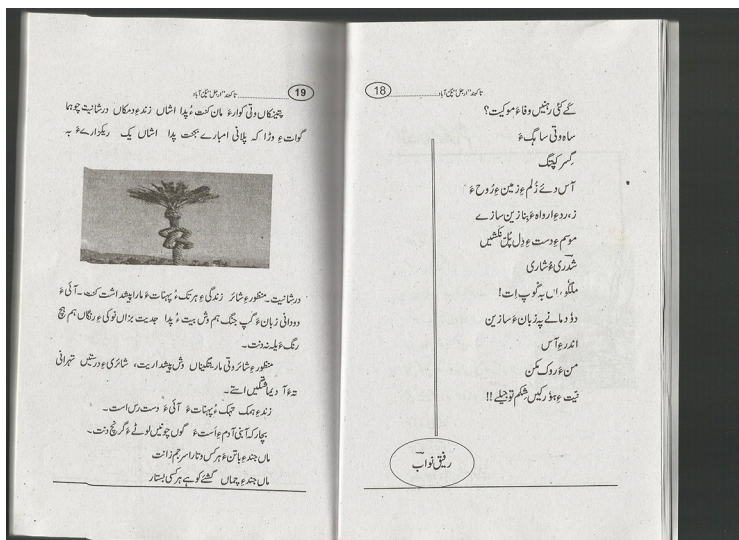 18
گے کئی رہنیں وفاءَ موکیت؟
ساہ وتی ساہگءَ
گسر کپتگ
آس دے ءُ زُلم ءِ زمین ءِ رُوح ءَ
زِرد ءِ ارواہ ءَ بنازین سازے
موسم ءِ دست ءِ دِل پُلّ نکشیں
شدّری ءُ شاری
بہ گوپ اِت!
دؤد مانے پہ زبان ءَ سازین
اندر ءِ آس
من ءَ روک مکن
نیّت ءِ ہؤرکیں شِکم تو جیلے!!
رفیق نوابؔ
19
پتینکاں وتی کوارءَ مان کنت ءُ پدا اشاں زندءِ دمکاں درشانیت چوہما
گوات ءِ وڑا کہ پلانی امبارے بجت پدا اشاں یک ریکزارےءَ بہ
درشانیت۔ منظور ءِ شائر زندگی ءِ ہر تک ءُ پہنات ءَ مارا پشداشت کنت۔ آئی ءَ
دودانی زبان ءَ گپ جنگ ہم وش بیت ءُ پدا جدیت بزاں نوکی ءِ رنگاں ہم ہچ
رنگ ءَ یلہ نہ دنت۔
منظور ءِ شائر وتی مارینگیناں وش پیشداریت، شائری ءِ درستیں تہرانی
تہ ءَ آ دیما شتگیں استے۔
زندءِ ہمک تہک ءُ پہنات ءَ آئی ءَ دست رس است۔
بچار کہ آنہی آدم ءِ است ءَ گوں چونیں لوٹے ءَ گرنچ دنت۔
ماں جندءِ باتن ءَ ہرکس وتارا سرجم زانت
ماں جندءِ چماں گشئے کوہے ہرکسی بستار